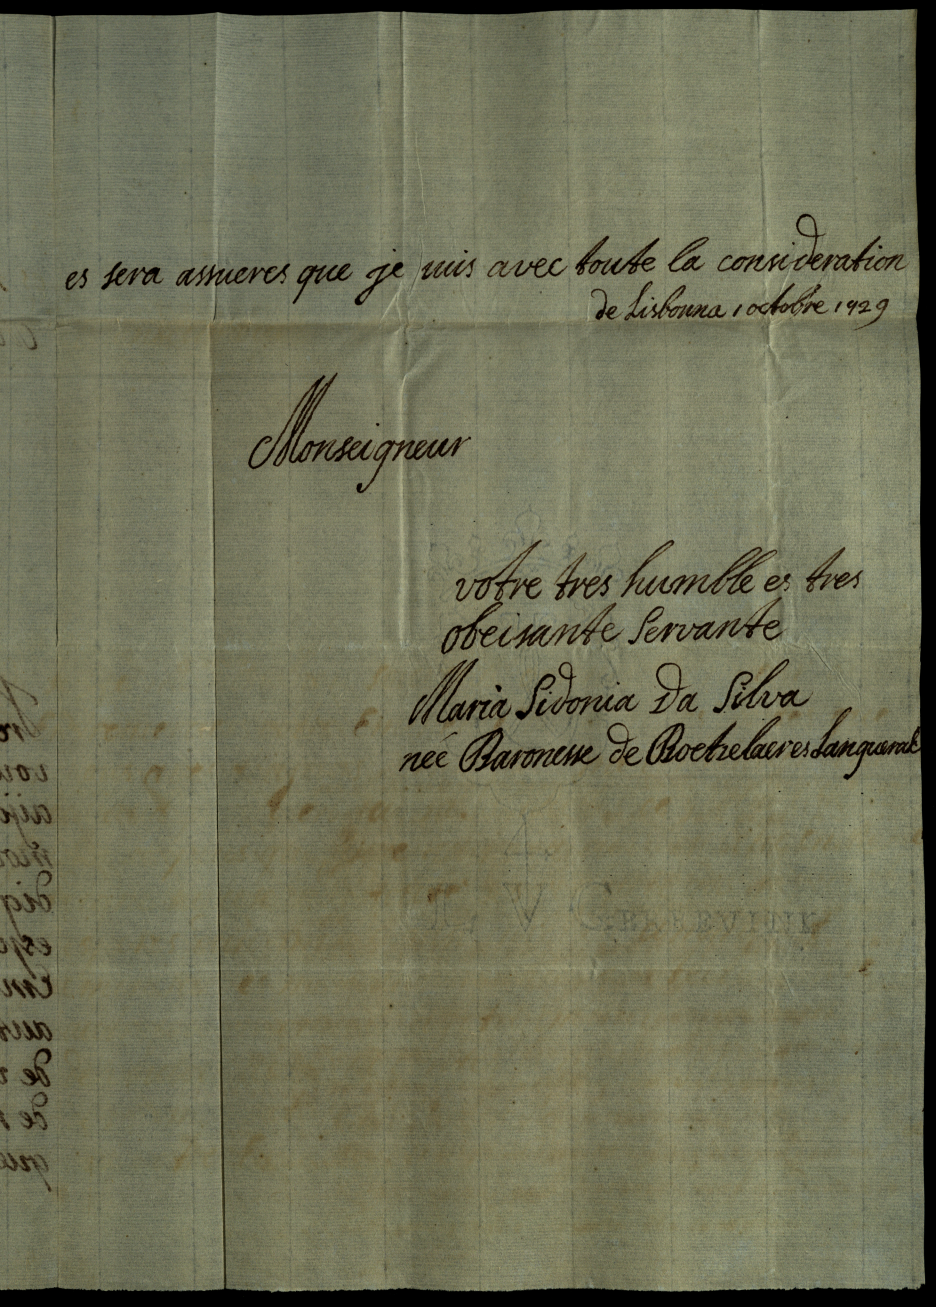 es sera assueres que je suis avec toute la consideration
de Lisbonna 1 octobre 1729
Monseigneur
votre tres humble es tres
obeisante servante
Maria Sidonia Da Silva
née Baronesse de Boetzelaer es Languerak